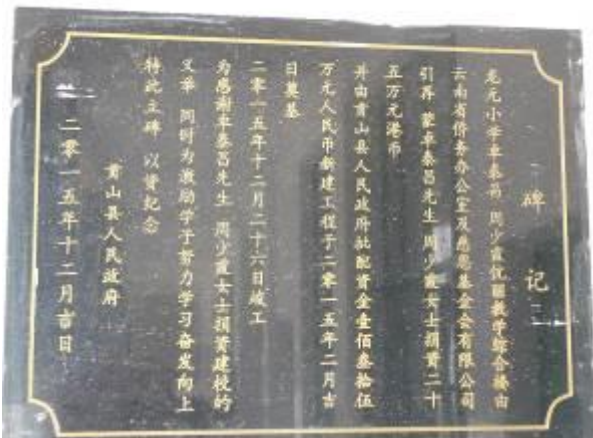 碑记
龙元小学卓泰昌 周少霞伉俪教学综合楼由
云南省侨务办公室及慈恩基金会有限公司
引荐 蒙卓泰昌先生 周少霞女士捐资二十
五万元港币
并由黄山县人民政府批配资金壹佰叁拾伍
万元人民币新建工程于二零一五年二月吉
日奠基
二零一五年十二月二十六日竣工
为感谢卓泰昌先生 周少霞女士捐资建校的
义举 同时为激励学子努力学习奋发向上
特此立碑 以资纪念
山县人民政府
二零一五年十二月吉日